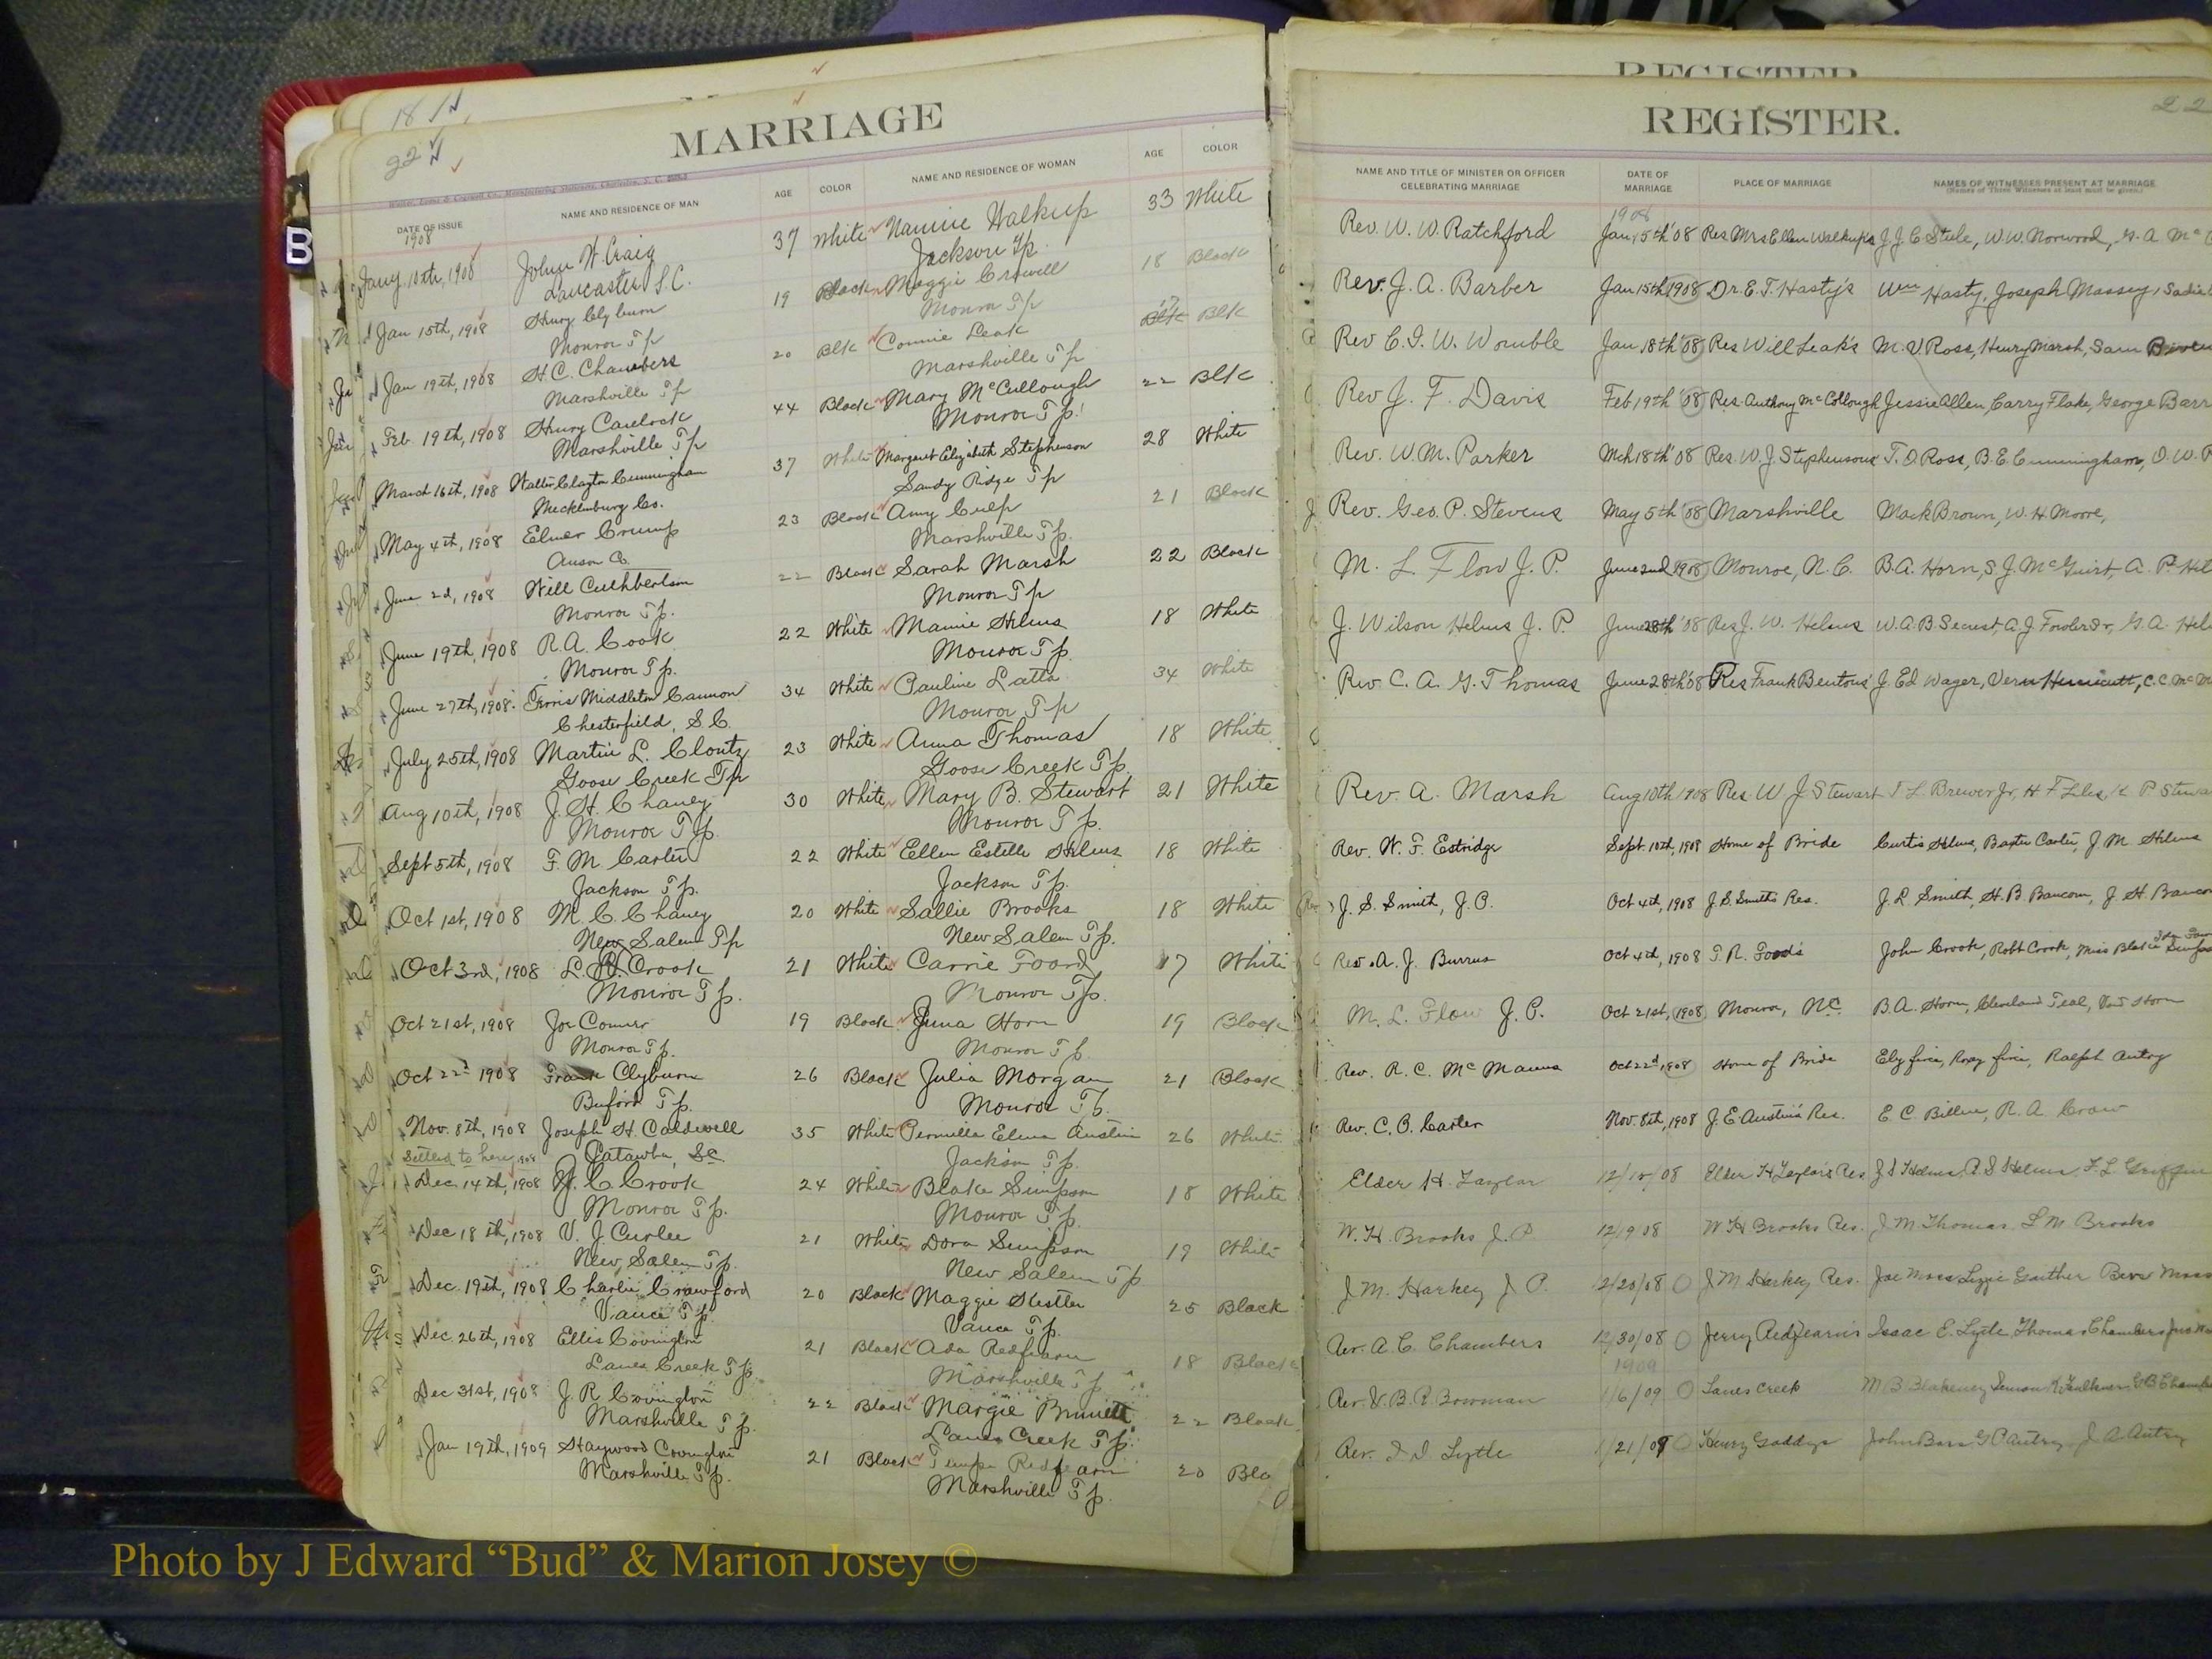 18
22
MARRIAGE
DATE OF ISSUE
NAME AND RESIDENCE OF MAN
AGE
COLOR
NAME AND RESIDENCE OF WOMAN
AGE
COLOR
1908
Jany. 10th, 1908 John W. Craig 37 White Nannie Walkup 33 White
Lancaster S.C. Jackson Tp.
Jan 15th, 1908 Henry Clyburn 19 Black Maggie Crowell 18 Black
Monroe Tp Monroe Tp
Jan 19th, 1908 H.C. Chambers 20 Blk Connie Leak 17 Blk
Marshville Tp Marshville Tp
Feb. 19th, 1908 Henry 44 Black Mary McCullough 22 Blk
Marshville Tp Monroe Tp.
March 16th, 1908 Walter Clayton Cunningham 37 White Margaret Elizabeth Stephenson 28 White
Mecklenburg Co. Sandy Ridge Tp
May 4th, 1908 Elmer Crump 23 Black Amy Culp 21 Black
Anson Co. Marshville Tp.
June 2d, 1908 Will Cuthbertson 22 Black Sarah Marsh 22 Black
Monroe Tp. Monroe Tp
June 19th, 1908 R.A. Cook 22 White Mamie Helms 18 White
Monroe Tp. Monroe Tp.
June 27th, 1908 Middleton Cannon 34 White Pauline Latta 34 White
Chesterfield, S.C. Monroe Tp
July 25th, 1908 Martin L. Clontz 23 White Anna Thomas 18 White
Goose Creek Tp Goose Creek Tp.
Aug 10th, 1908 J.H. Chaney 30 White Mary B. Stewart 21 White
Monroe Tp. Monroe Tp.
Sept 5th, 1908 F. M. Carter 22 White Ellen Estelle Helms 18 White
Jackson Tp. Jackson Tp.
Oct 1st, 1908 M. C. Chaney 20 White Sallie Brooks 18 White
New Salem Tp New Salem Tp.
Oct 3rd, 1908 L. B. Crook 21 White Carrie Foard 17 White
Monroe Tp. Monroe Tp.
Oct 21st, 1908 Joe 19 Black Juna Horn 19 Black
Monroe Tp. Monroe Tp.
Oct 22d 1908 Frank Clyburn 26 Black Julia Morgan 21 Black
Buford Tp. Monroe Tp.
Nov. 8th, 1908 Joseph H. Caldwell 35 White Elma Austin 26 White
Settled to here Catawba, SC. Jackson Tp.
Dec. 14th, 1908 J. C. Crook 24 White Blake Simpson 18 White
Monroe Tp. Monroe Tp.
Dec 18th, 1908 V. J. Curlee 21 White Dora Simpson 19 White
New Salem Tp. New Salem Tp
Dec. 19th, 1908 Charlie Crawford 20 Black Maggie 25 Black
Vance Tp. Vance Tp.
Dec. 26th, 1908 Ellis Covington 21 Black Ada Redfearn 18 Black
Lanes Creek Tp. Marshville Tp
Dec 31st, 1908 J. R. Covington 22 Black Margie 22 Black
Marshville Tp. Lanes Creek Tp.
Jan 19th, 1909 Haywood Covington 21 Black Redfearn 20 Bla
Marshville Tp. Marshville Tp.
REGISTER
REGISTER.
22
NAME AND TITLE OF MINISTER OR OFFICER
CELEBRATING MARRIAGE
DATE OF
MARRIAGE
PLACE OF MARRIAGE
NAMES OF WITNESSES PRESENT AT MARRIAGE
(Names of Three Witnesses at least must be given.)
1908
Rev. W. W. Ratchford Jan 15th '08 Res Mrs Ellen Walkup's J.J.C. Steele, W.W. Norwood,
Rev. J. A. Barber Jan 15th 1908 Dr. E. T. Hasty's Wm Hasty, Joseph Massey,
Rev C. G. W. Womble Jan 18th '08 Res Will Leak's M. V. Ross, Henry Marsh, Sam
Rev J. F. Davis Feb 19th '08 Res. Anthony McCollough Jessie Allen, Carry Flake, George Barr
Rev. W. M. Parker Mch 18th '08 Res. W. J. Stephensons T. O. Ross, B. E. Cunningham, O. W. P
Rev. Geo. P. Stevens May 5th '08 Marshville Mack Brown, W. H. Moore,
M. L. Flow J. P. June 2nd 1908 Monroe, N.C. B.A. Horn, S. J. McGuirt, A. P. Hel
J. Wilson Helms J. P. June 28th '08 Res J. W. Helms W.A.B Secrest, A.J. Fowler Sr, G.A. Hel
Rev C. A. G. Thomas June 28th '08 Res Frank Bentons J. Ed Wager, Vern Hunnicutt, C.C. McM
Rev. A. Marsh Aug 10th 1908 Res W J Stewart T L Brewer Jr, H F Liles, K P Stewa
Rev. W. F. Estridge Sept 10th, 1908 Home of Bride Curtis Helms, Baxter Carter, J M Helms
J. S. Smith, J. P. Oct 4th, 1908 J. S. Smith's Res. J. L. Smith, H. B. Baucom, J. H. Bauco
Rev. A. J. Burrus Oct 4th, 1908 T. R. Foard's John Crook, Robt Crook, Miss Blake Simpso
M. L. Flow J. P. Oct 21st, 1908 Monroe, N.C. B.A. Horn, Cleveland Teal, Horn
Rev. R. C. McManus Oct 22d, 1908 Home of Bride Ralph Autry
Rev. C. B. Carter Nov. 8th, 1908 J. E. Austin's Res. E. C. R. A. Crow
Elder H. Taylor 12/15/08 Elder H Taylor's Res. J S Helms, R. S Helms F. L Griffin
W. H. Brooks J. P 12/19 08 W H Brooks Res. J M Thomas L M Brooks
J M. Harkey J P. 12/20/08 J M Harkey Res. Joe Moss Lizzie Gaither Moss
Rev. A. C. Chambers 12/30/08 Jerry Redfearns Isaac E. Lytle Thomas Chambers
1909
Rev. V. B. R. Bowman 1/6/09 Lanes Creek M B Blakeney
Rev. I. I Lytle 1/21/09 Henry Gaddys John G P Autry J A Autry
B
Photo by J Edward “Bud” & Marion Josey ©